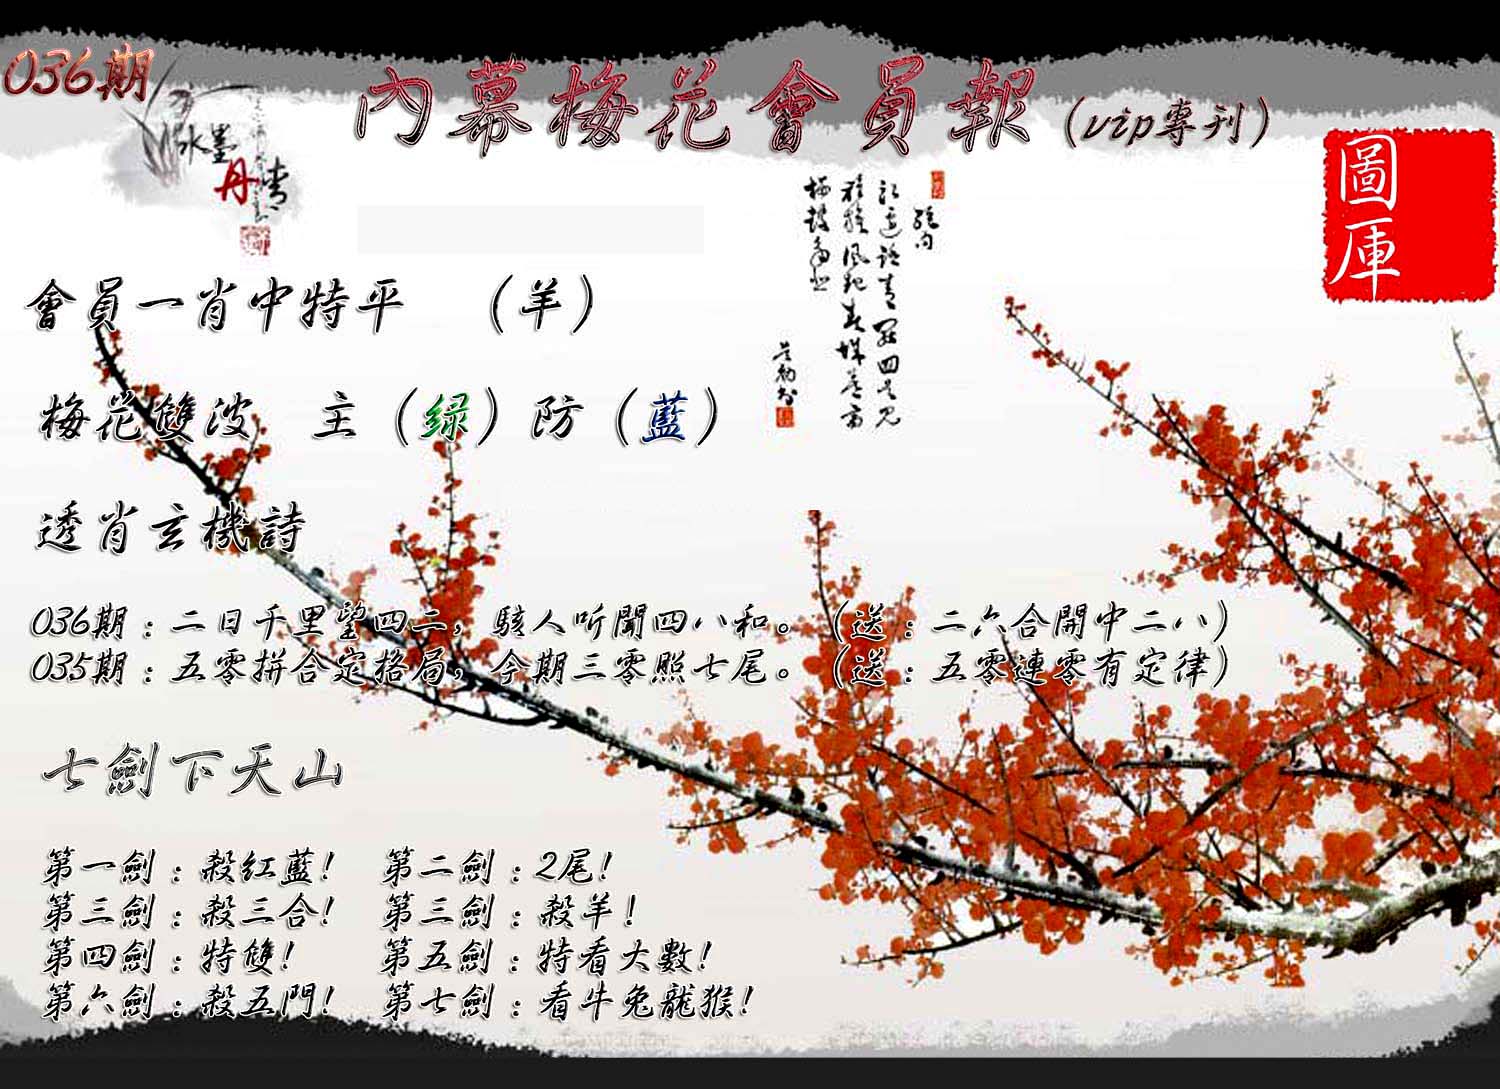 036期
內幕梅花會員報(vip專刊)
水墨
丹青
圖庫
絕句
會員一肖中特平 (羊)
梅花雙波 主(緑)防(藍)
透肖玄機詩
036期:二日千里望四二,駭人听聞四八和。(送:二六合開中二八)
035期:五零拼合定格局,今期三零照七尾。(送:五零連零有定律)
七劍下天山
第一劍:殺红藍! 第二劍:2尾!
第三劍:殺三合! 第三劍:殺羊!
第四劍:特雙! 第五劍:特看大數!
第六劍:殺五門! 第七劍:看牛兔龍猴!